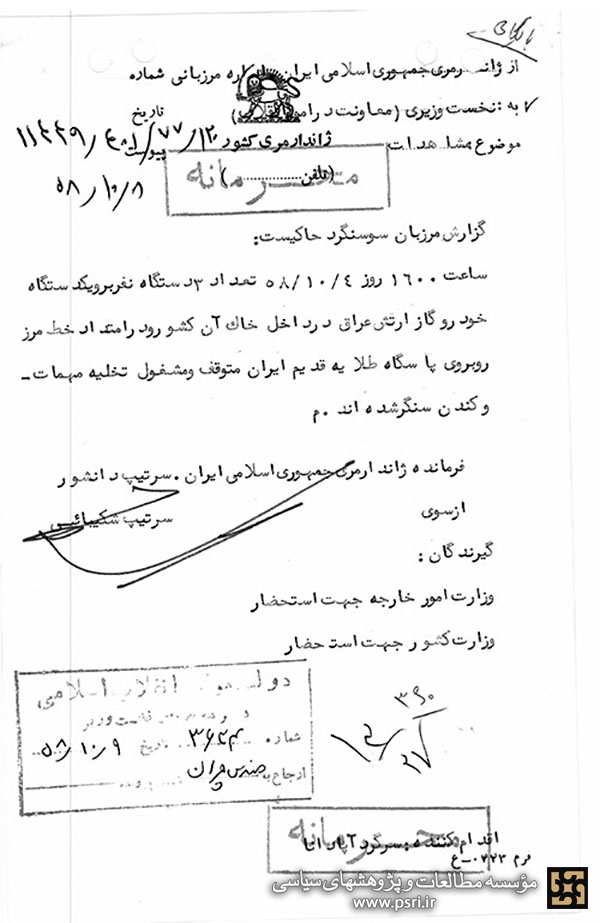 بایگانی
از ژاندارمری جمهوری اسلامی ایران اداره مرزبانی شماره
به : نخست وزیری (معاونت در امور انقلاب)
تاریخ
موضوع مشاهدات ژاندارمری کشور پیوست
۵۸/۱۰/۸
(تلفن ...............)
محرمانه
گزارش مرزبان سوسنگرد حاکیست:
ساعت ۱۶۰۰ روز ۵۸/۱۰/٤ تعداد ۳دستگاه نفربر ویکدستگاه
خودرو گاز ارتش عراق درداخل خاك آن کشور ودرامتداد خط مرز
روبروی پاسگاه طلایه قدیم ایران متوقف ومشغول تخلیه مهمات-
و کندن سنگر شده اند .م
فرمانده ژاندارمری جمهوری اسلامی ایران . سرتیپ دانشور
ازسوی سرتیپ شکیبائی
گیرندگان :
وزارت امور خارجه جهت استحضار
وزارت کشور جهت استحضار
دولت انقلاب اسلامی
نخست وزیر
شماره ۳۶۲۳ تاریخ ۵۸/۱۰/۹
ارجاع به مهندس چمران
۳۹۰
محرمانه
اقدام کننده : سرگرد
فرم ۰۷۲۳-ع
مؤسسه مطالعات و پژوهشهای سیاسی
www.psri.ir